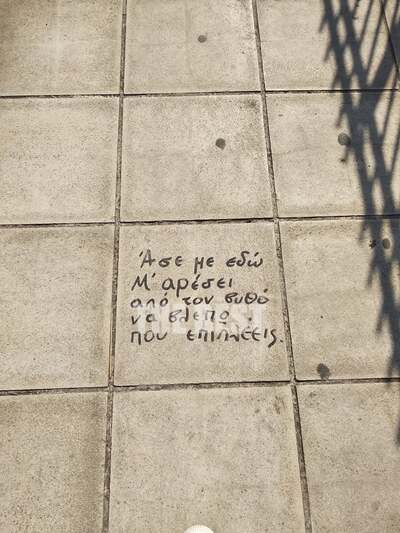 Άσε με εδώ
Μ' αρέσει
από τον βυθό
να βλέπω
που επιπλέεις.